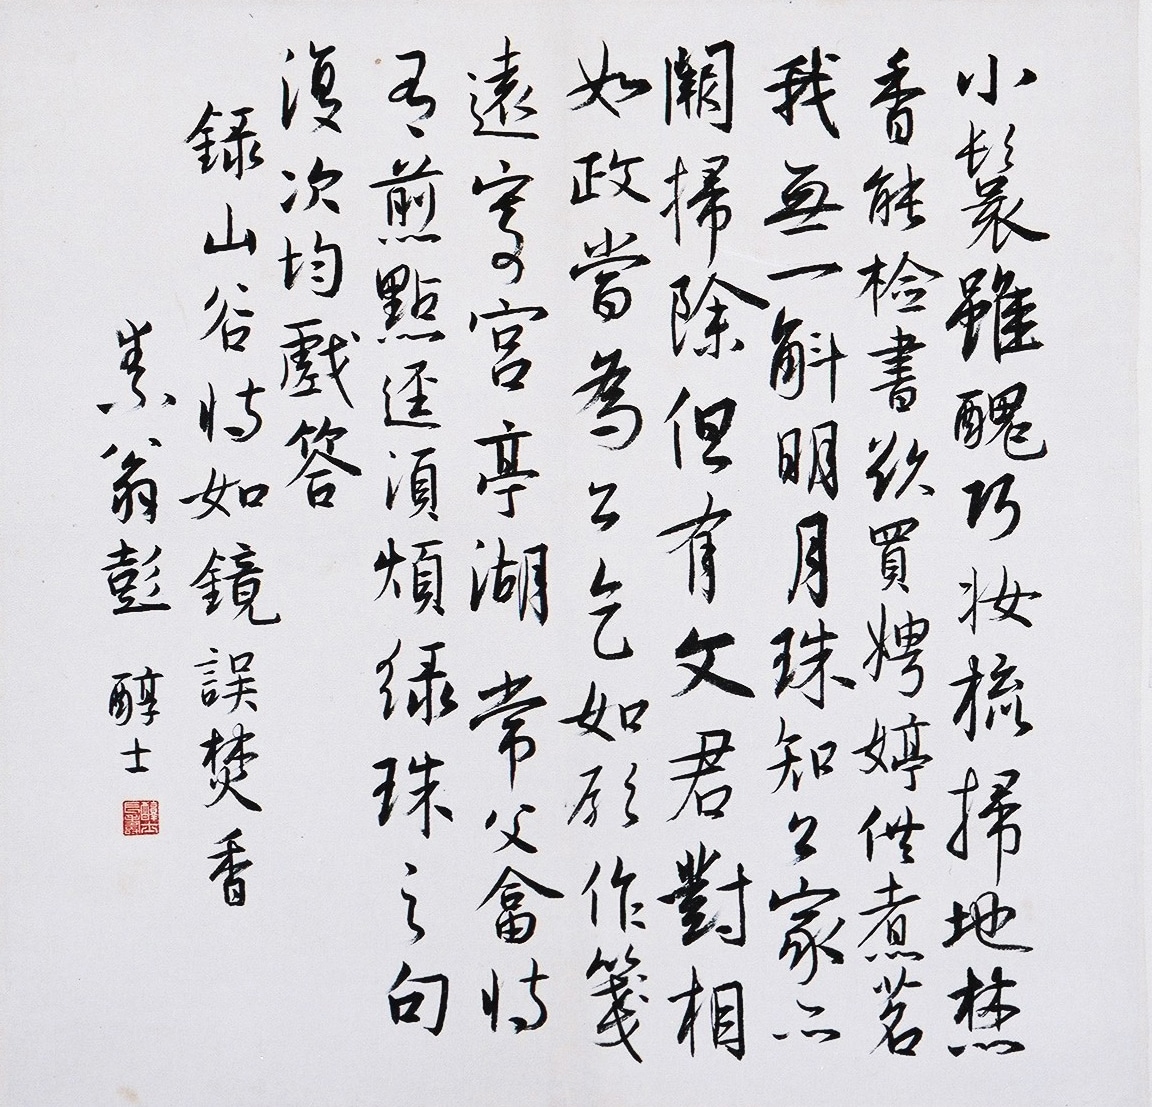 小鬟雖醜巧妝梳掃地焚
香能檢書欲買娉婷供煮茗
我無一斛明月珠知公家亦
闕掃除但有文君對相
如政當為公乞如願作箋
遠寄宮亭湖 常父畣詩
有煎點逕須煩綠珠之句
復次均戲答
錄山谷詩如鏡誤焚香
素翁彭醇士